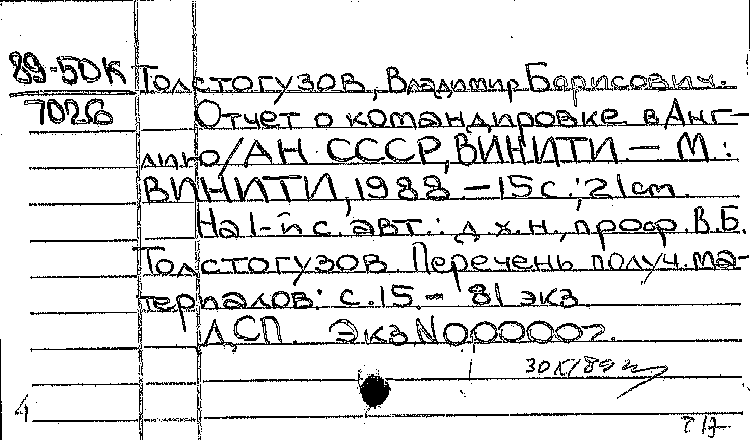 89-50К Толстогузов, Владимир Борисович.
7026 Отчет о командировке в Анг-
лию/АН СССР, ВИНИТИ. — М.:
ВИНИТИ, 1988. — 15 с.; 21 см.
На 1-й с. авт.: д.х.н., проф. В.Б.
Толстогузов. Перечень получ. ма-
териалов: с. 15. — 81 экз.
ДСП. Экз N 000002.
4